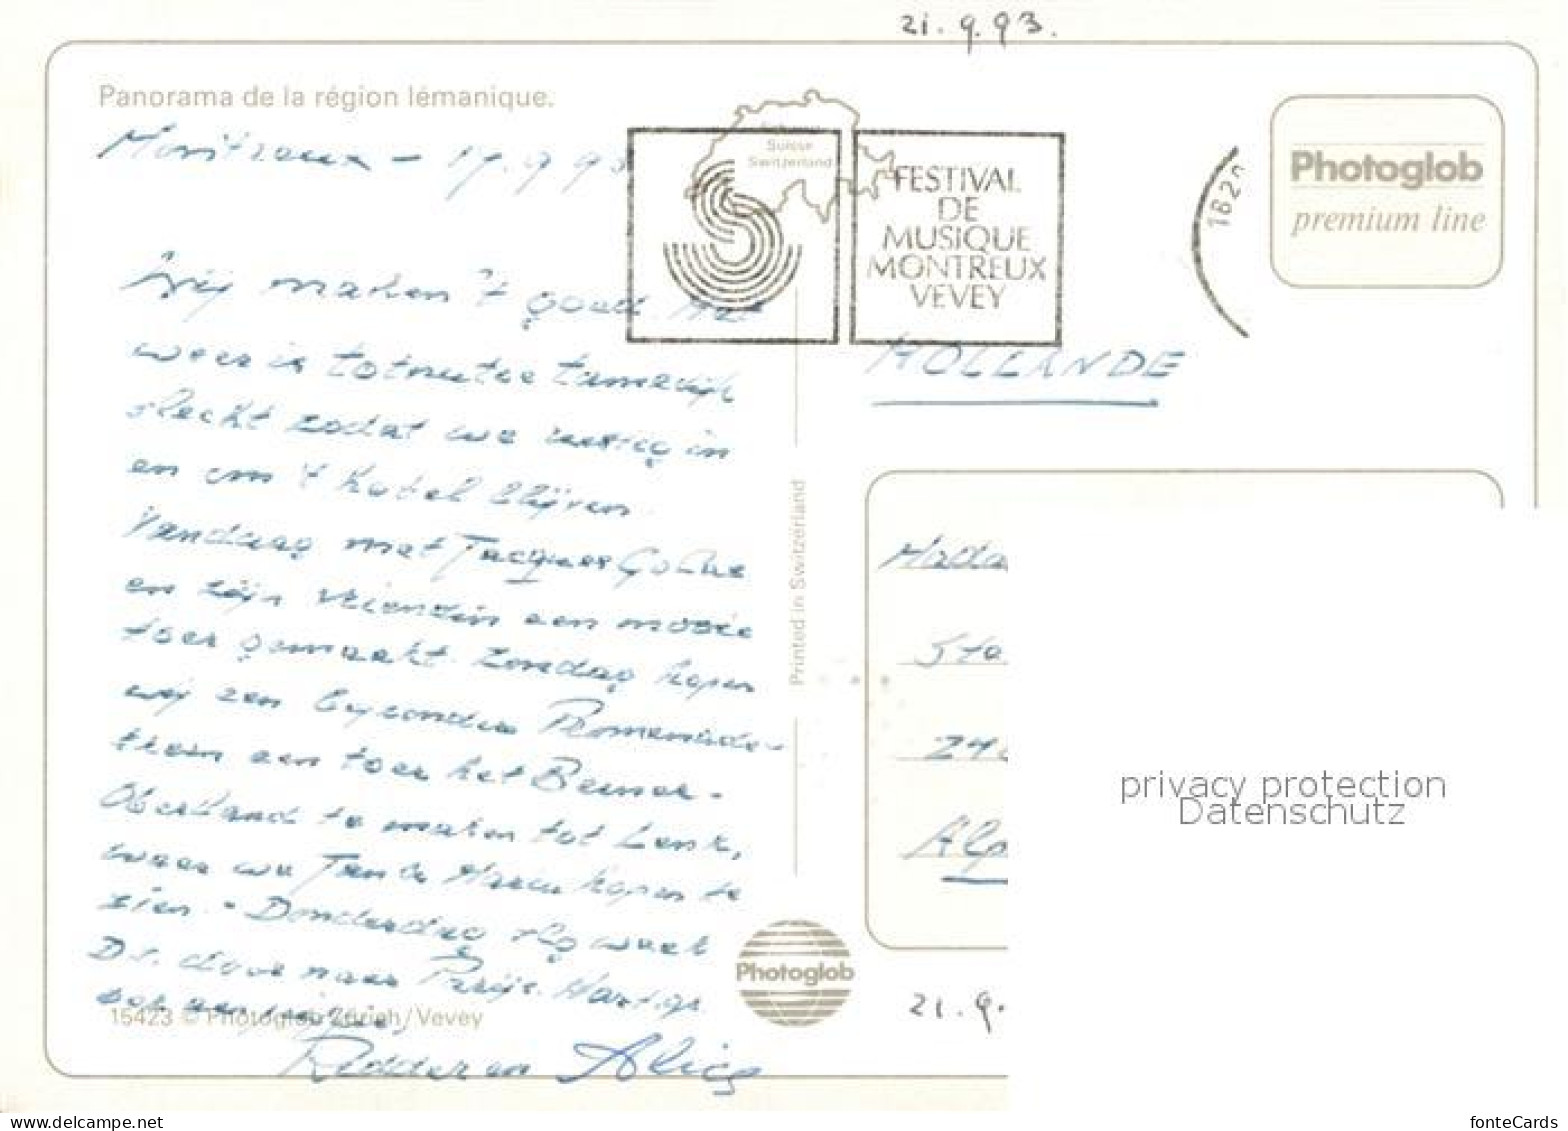 21.9.93.
Panorama de la région lémanique.
Montreux - 17.9.93
Schweiz
Suisse
Switzerland
FESTIVAL
DE
MUSIQUE
MONTREUX
VEVEY
1820
Photoglob
premium line
Wij maken 't goed. Het
weer is totnutoe tamelijk
slecht zodat we weinig in
en om 't hotel blijven.
Vandaag met Jacques
en zijn vriendin een mooie
toer gemaakt. Zondag hopen
wij een bijzondere Promenade-
trein een toer het Berner-
Oberland te maken tot Lenk,
waar we Tante hopen te
zien. - Donderdag
D.V. door naar Parijs. Hart. gr.
ook aan
Ridder en Alice
HOLLANDE
Mada
Sta
240
Alp
Printed in Switzerland
privacy protection
Datenschutz
Photoglob
15423 © Photoglob Zürich/Vevey
21.9.
www.delcampe.net
fonteCards